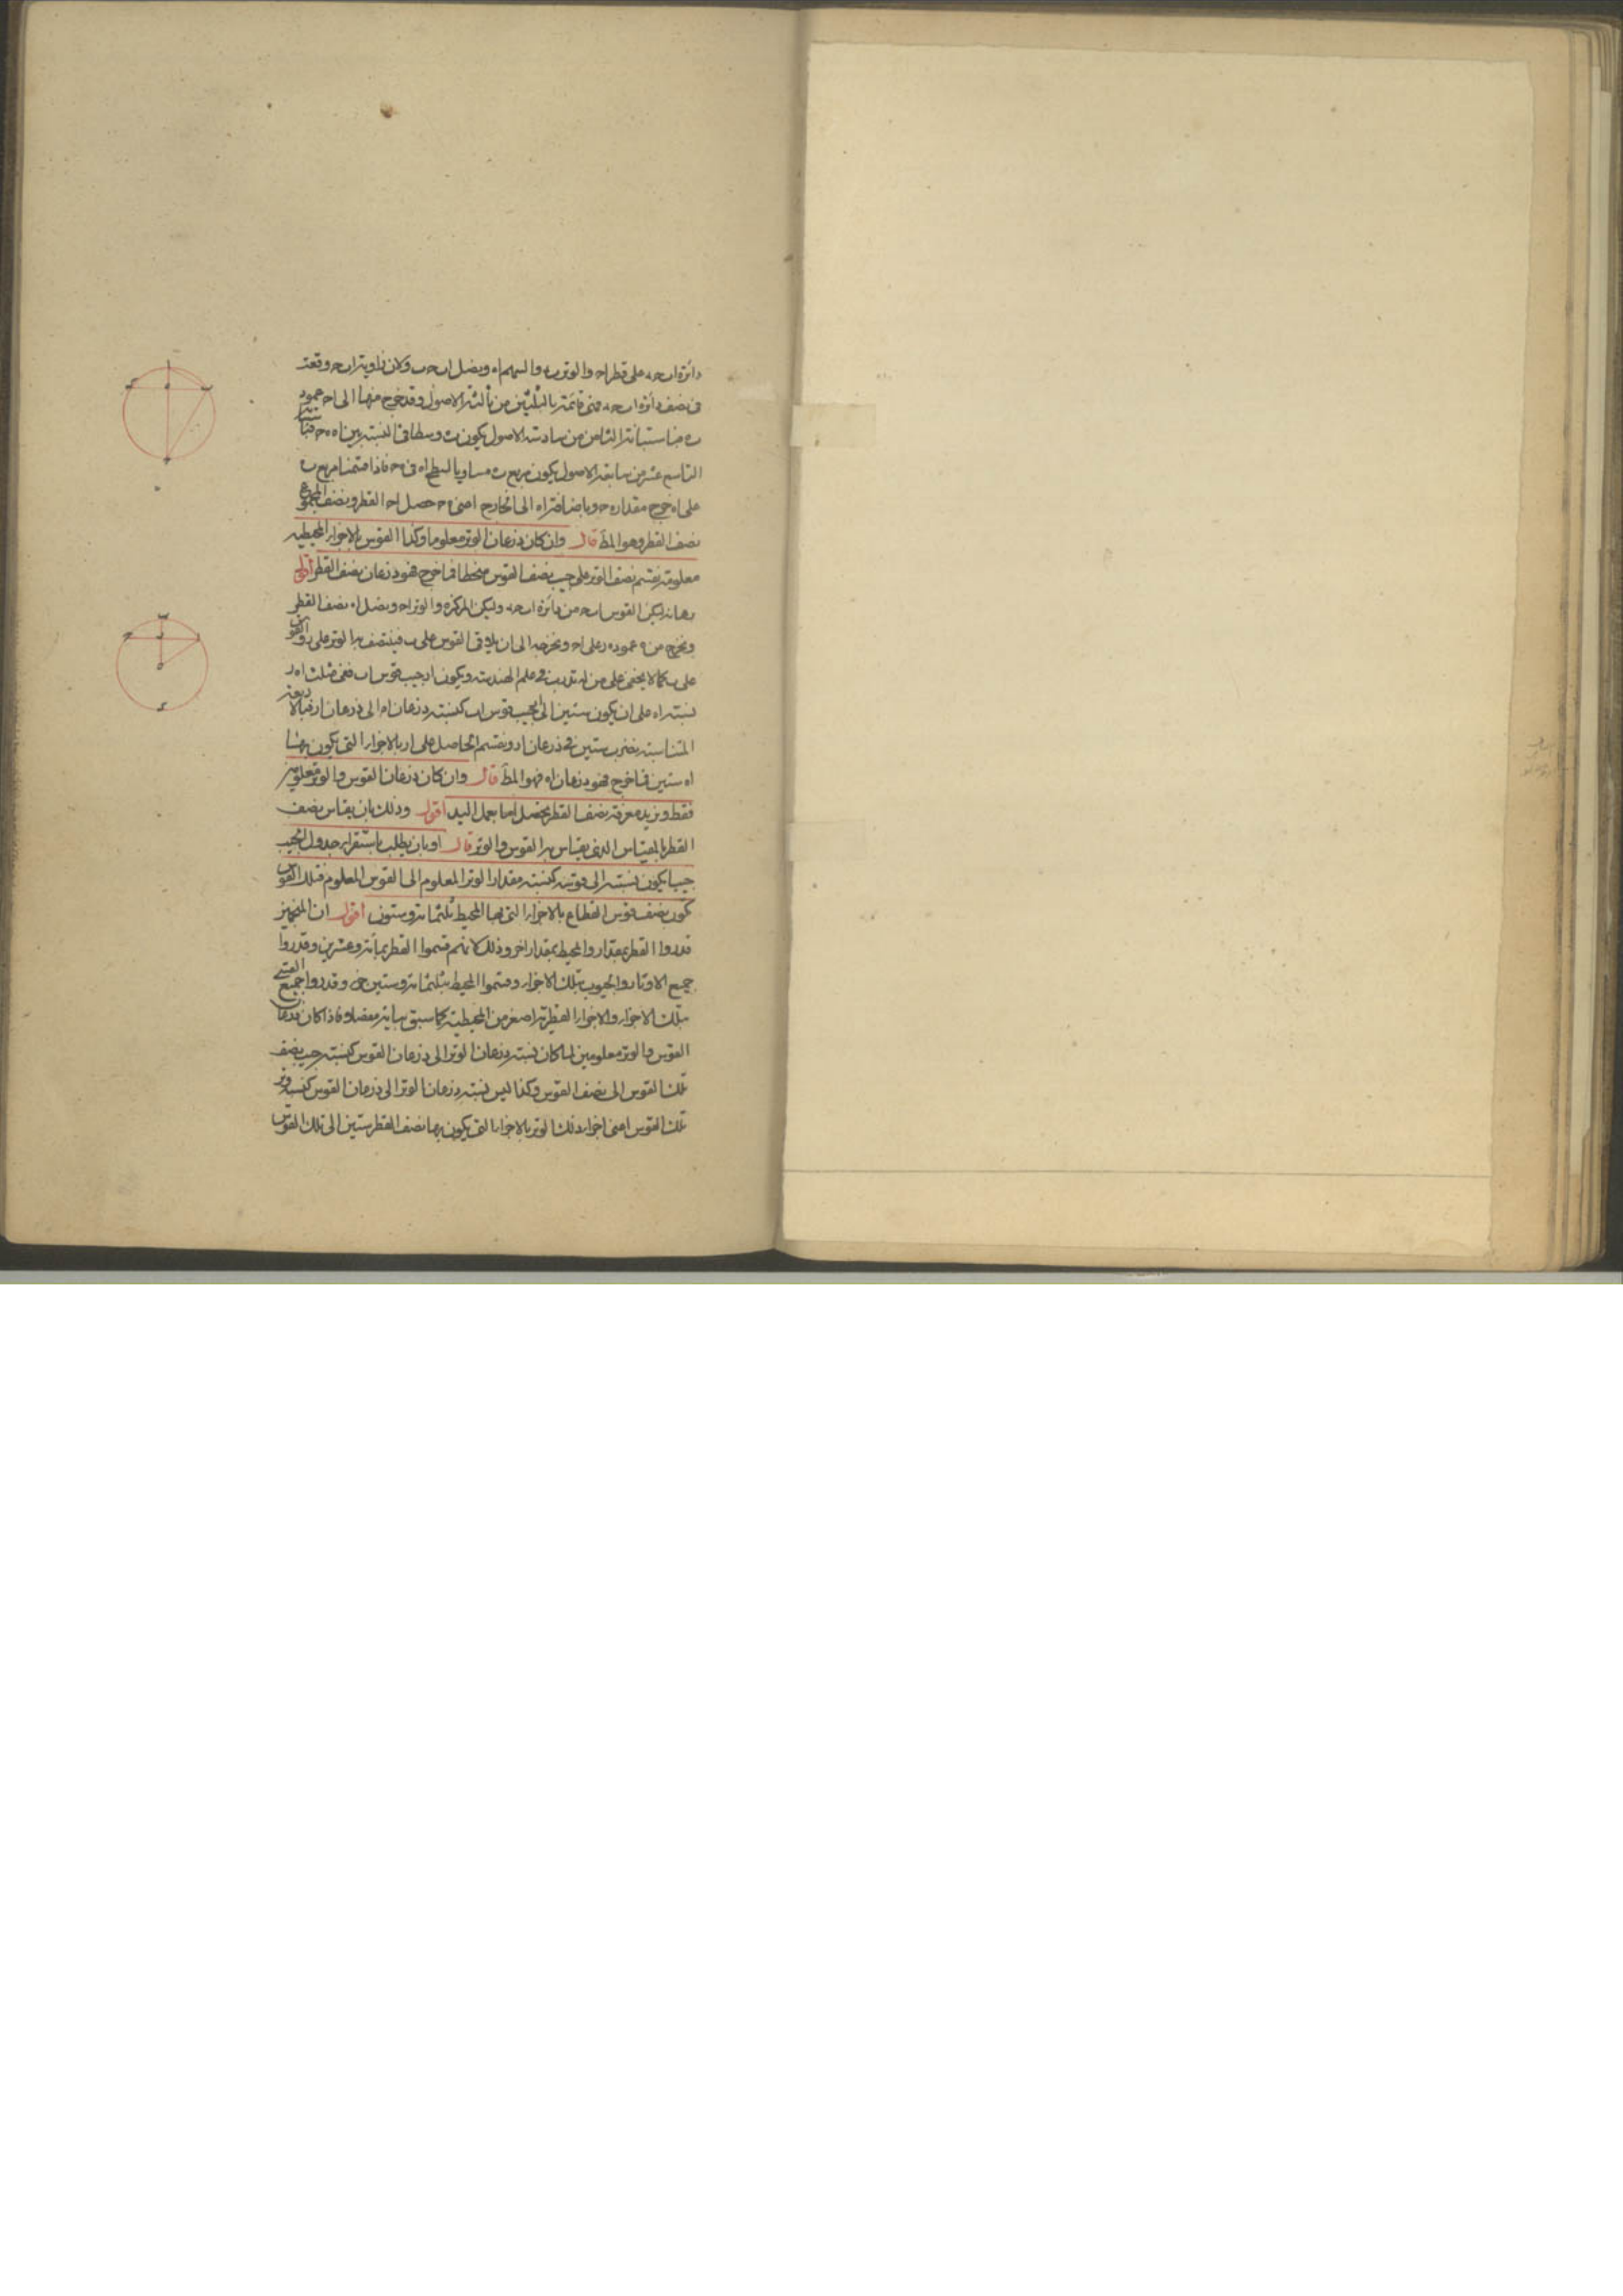 دائرة اب حد على قطر اح والوتر ب د والسهم اه ونصل اب حب ولان زاوية اب ح وقعت
فى نصف دائرة اب حد فهى قائمة بالثلثين من ثالثة الاصول وقد خرج منها الى اح عمود
ب ه فباستبانة الثامن من سادسة الاصول يكون ب ه وسطا فى النسبة بين اه ه ح فبا
التاسع عشر من سابعة الاصول يكون مربع ب ه مساويا لسطح اه فى ه ح فاذا قسمنا مربع ب ه
على اه خرج مقدار ه ح وباضافة اه الى الخارج اعنى ه ح حصل اح القطر ونصف المجموع
نصف القطر وهو المط قال وان كان ذرعان الوتر معلوما وكذا القوس بالاجزاء المحيطية
معلومة نقسم نصف الوتر على جيب نصف القوس منحطا فما خرج فهو ذرعان نصف القطر اقول
برهانه ليكن القوس اب ح من دائرة اب حد وليكن المركز ه والوتر اح ونصل اه نصف القطر
ونخرج من ه عمود ه ر على اح ونخرجه الى ان يلاقى القوس على ب فينتصف به الوتر على ر والقوس
على ب كما لا يخفى على من له تدرب فى علم الهندسة ويكون ار جيب قوس اب ففى مثلث اه ر
نسبة اه على ان يكون ستين الى ار جيب قوس اب كنسبة ذرعان اه الى ذرعان ار فبالاربعة
المتناسبة نضرب ستين فى ذرعان ار ونقسم الحاصل على ار بالاجزاء التى يكون بها
اه ستين فما خرج فهو ذرعان اه فهو المط قال وان كان ذرعان القوس والوتر معلومين
فقط ونريد معرفة نصف القطر يحصل اما بعمل اليد اقول وذلك بان يقاس نصف
القطر بالمقياس الذى يقاس به القوس والوتر قال او بان يطلب باستقراء جدول الجيب
جيبا يكون نسبته الى قوسه كنسبة مقدار الوتر المعلوم الى القوس المعلوم فتلك القوس
تكون نصف قوس القطاع بالاجزاء التى بها المحيط ثلثمائة وستون اقول ان المنجمين
قدروا القطر بمقدار والمحيط بمقدار اخر وذلك لانهم قسموا القطر بمائة وعشرين وقدروا
جميع الاوتار والجيوب بتلك الاجزاء وقسموا المحيط بثلثمائة وستين جزء وقدروا جميع القسى
بتلك الاجزاء والاجزاء القطرية اصغر من المحيطية كما سبق بيانه مفصلا فاذا كان ذرعان
القوس والوتر معلومين لما كان نسبة ذرعان الوتر الى ذرعان القوس كنسبة جيب نصف
تلك القوس الى نصف القوس وكذا ليس نسبة ذرعان الوتر الى ذرعان القوس كنسبة وتر
تلك القوس اعنى اجزاء ذلك الوتر بالاجزاء التى يكون بها نصف القطر ستين الى تلك القوس